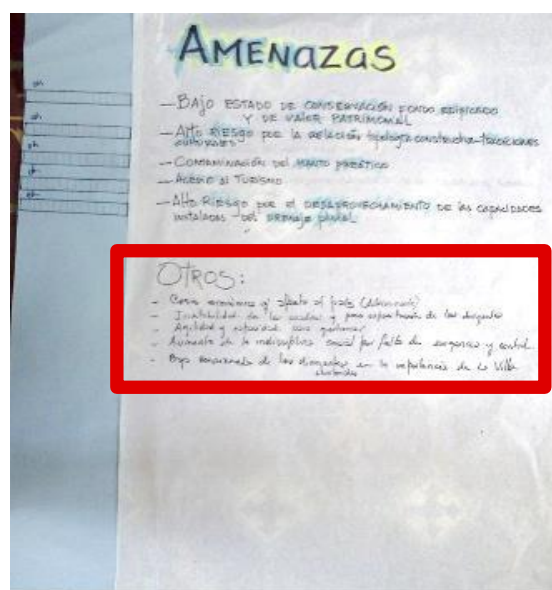 AMENAZAS
— BAJO ESTADO DE CONSERVACIÓN FONDO EDIFICADO
Y DE VALOR PATRIMONIAL
— Alto RIESGO POR LA RELACIÓN tipología constructiva-tradiciones
culturales
— CONTAMINACIÓN DEL MANTO FREÁTICO
— ACCESO al TURISMO
— Alto RIESGO POR el DESAPROVECHAMIENTO DE las CAPACIDADES
instaladas del DRENAJE pluvial
OTROS:
- Crisis económica q' afecta al país
- Inestabilidad de los cuadros y poca experiencia de los dirigentes
- Agilidad y
- Aumento de la indisciplina social por falta de exigencia y control
- Bajo de los dirigentes en la importancia de la Villa